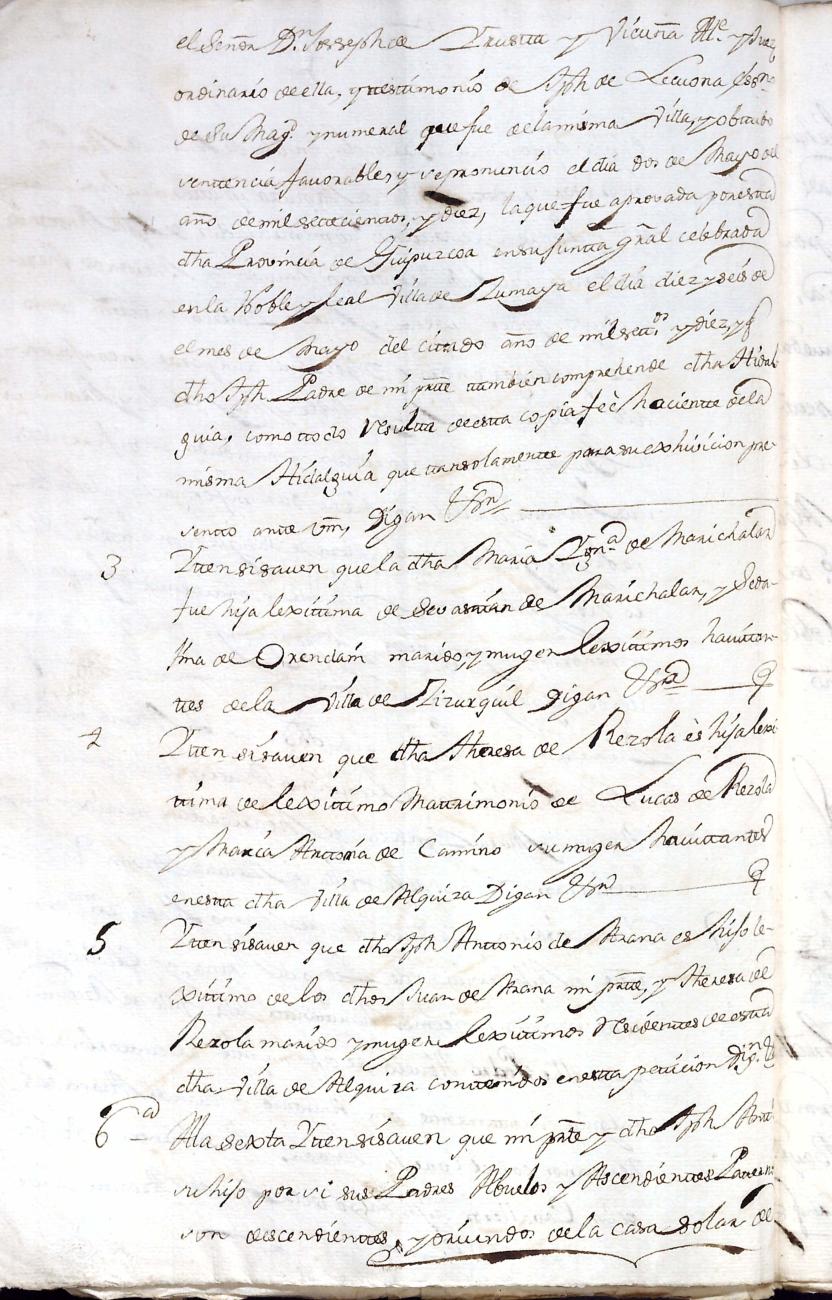 el Señor Dn Joseph de Yrustta y Vicuña Alle. y Juez
ordinario de ella, y testimonio de Jph de Lecuona essno
de Su Mag.d y numeral que fue de la misma Villa, y obtubo
senttencia favorables, y se pronuncio el dia dos de Mayo del
año de mil settecienttos, y diez, la que fue aprovada por estta
dha Provincia de Guipuzcoa en su Juntta Gral celebrada
en la Noble y Leal Villa de Zumaya el dia diez y seis de
el mes de Mayo del cittado año de mil setts.os y diez, y q
dho Jph Padre de mi partte ttambien comprehende dha Hidal
guia, como ttodo resultta de estta copia feè hacientte de la
misma Hidalguia que ttan solamentte para su exhivicion pre-
sentto antte vm, Digan &ra
3 Ytten si saven que la dha Maria Ygn.a de Marichalar
fue hija lexittima de Sevasttian de Marichalar, y
de Orendain marido, y muger lexittimos havittan-
ttes de la Villa de Zizurquil Digan &ra
4 Ytten si saven que dha Theresa de Rezola ès hija lexi
ttima de lexittimo Mattrimonio de Lucas de Rezola
y Maria Anttonia de Camino su muger havittanttes
en estta dha Villa de Alquiza Digan &ra
5 Ytten si saven que dho Jph Anttonio de Arana es hijo le-
xittimo de los dhos Juan de Arana mi partte, y Theresa de
Rezola marido y muger lexittimos residenttes de estta
dha Villa de Alquiza conttenidos en estta peticion Dig.n &ra
6a A la sexta Ytten si saven que mi partte y dho Jph Antt.o
su hijo por si sus Padres Abuelos y Ascendienttes Patternos
son descendienttes, y oriundos de la casa solar de